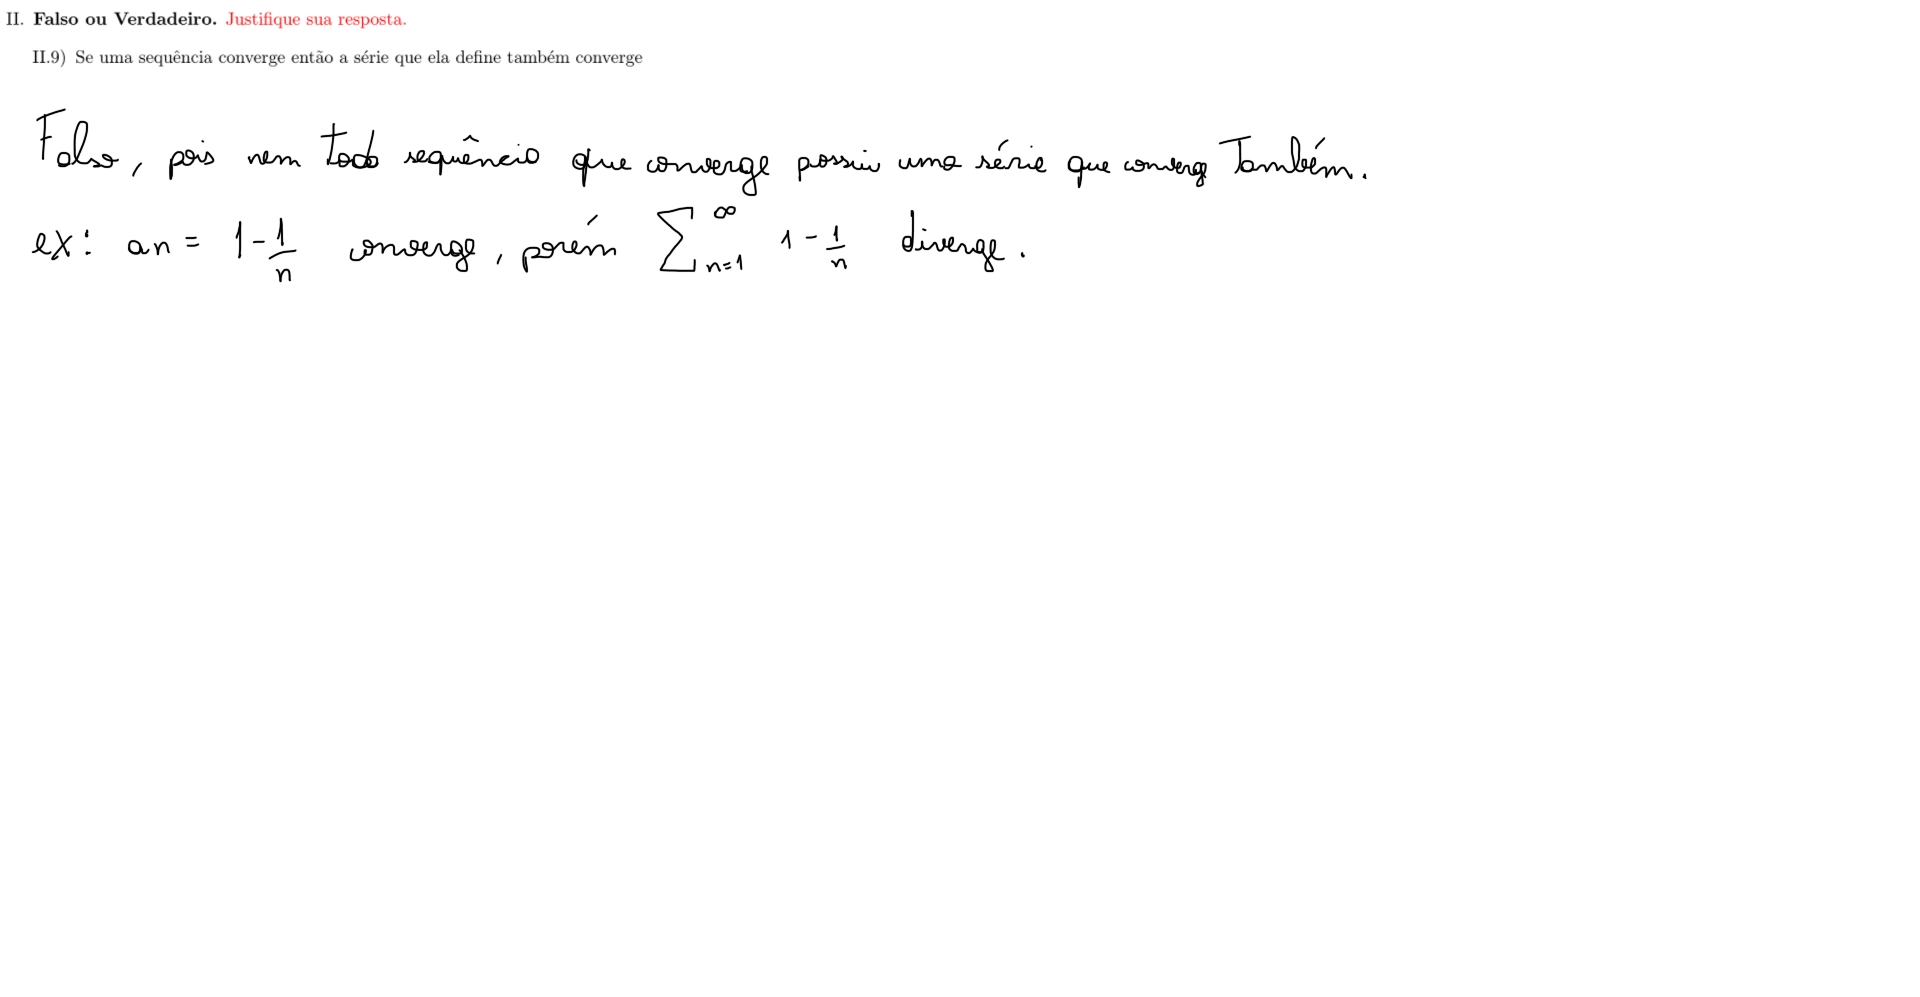 II. Falso ou Verdadeiro. Justifique sua resposta.
II.9) Se uma sequência converge então a série que ela define também converge
Falso, pois nem toda sequência que converge possui uma série que converge Também.
ex: an = 1 - 1/n converge, porém ∑_{n=1}^{∞} 1 - 1/n diverge.